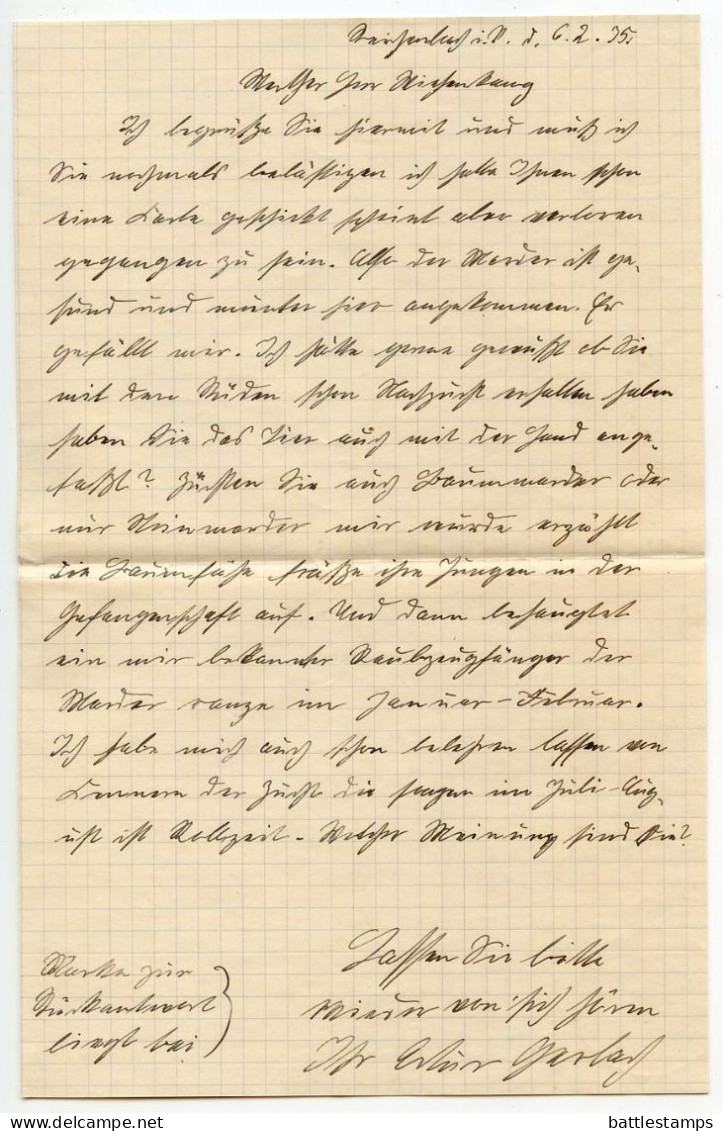 Reichenbach i. V. d. 6. 2. 35.
Werther Herr
Ich begrüße Sie hiermit und muß ich
Sie nochmals belästigen ich hatte Ihnen schon
eine Karte geschickt scheint aber verloren
gegangen zu sein. Also der Marder ist ge-
sund und munter hier angekommen. Er
gefällt mir. Ich hätte gerne gewußt ob Sie
mit dem Rüden schon Nachzucht erhalten haben
haben Sie das Tier auch mit der Hand ange-
faßt? Züchten Sie auch Baummarder oder
nur Steinmarder mir wurde erzählt
die Baumfähe fräße ihre Jungen in der
Gefangenschaft auf. Und dann behauptet
ein mir bekannter Raubzeugfänger der
Marder ranze im Januar-Februar.
Ich habe mich auch schon belehren lassen von
Kennern der Zucht die sagen im Juli-Aug-
ust ist Rollzeit. Welcher Meinung sind Sie?
Lassen Sie bitte
wieder von sich hören
Ihr Artur Gerlach
Marke zur
Rückantwort
liegt bei
battlestamps